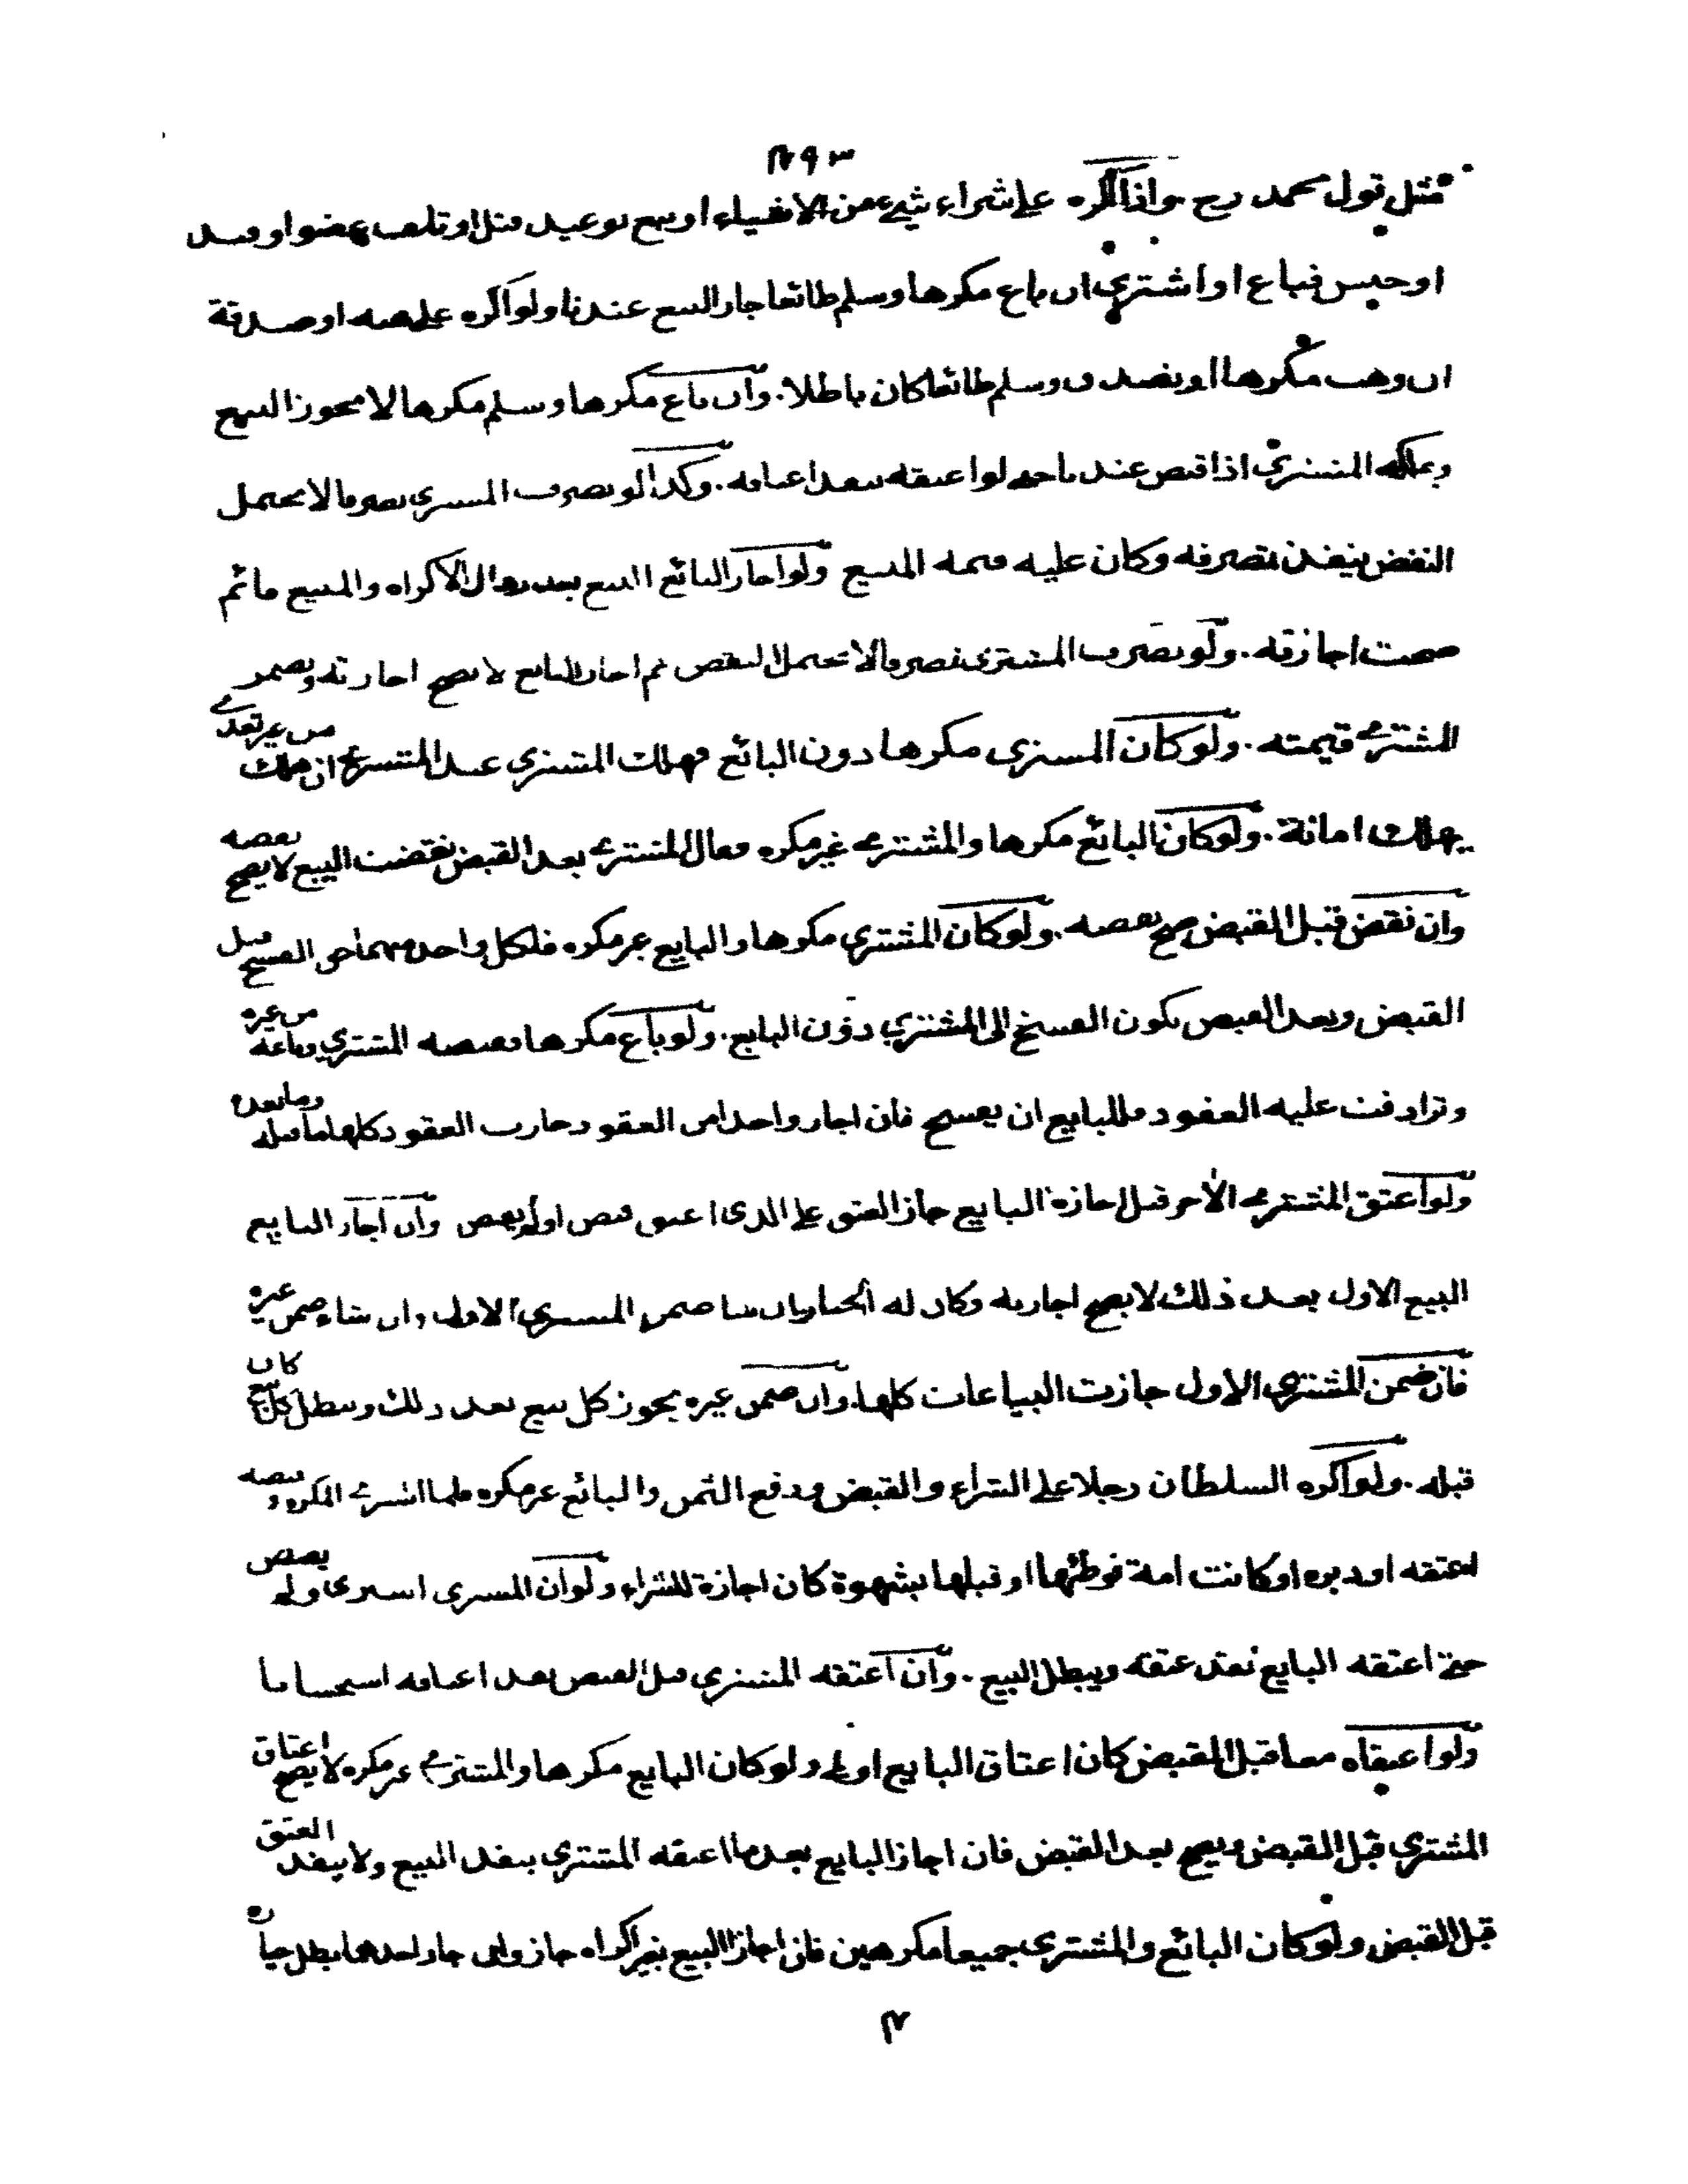 ٤٩٣
مثل قول محمد رح واذا اكره على شراء شيء من الاشياء او بيع بوعيد قتل او تلف عضو او قيد
او حبس فباع او اشتري ان باع مكرها وسلم طائعا جاز البيع عندنا ولو اكره على هبه او صدقة
ان وهب مكرها او تصدق وسلم طائعا كان باطلا. وان باع مكرها وسلم مكرها لا يجوز البيع
ويملكه المشتري اذا قبض عندنا حتى لو اعتقه ينفد اعتاقه. وكذا لو تصرف المشتري تصرفا لا يحتمل
النقض ينفذ تصرفه وكان عليه قيمه المبيع ولو اجاز البائع البيع بعد زوال الاكراه والمبيع قائم
صحت اجازته. ولو تصرف المشتري تصرفا لا تحتمل النقض ثم اجاز البايع لا يصح اجازته ويضمن
المشتري قيمته. ولو كان المشتري مكرها دون البائع فهلك المشتري عند المشتري ان هلك من غير تعدي
يهلك امانة. ولو كان البائع مكرها والمشتري غير مكره فقال المشتري بعد القبض نقضت البيع لا يصح نقضه
وان نقض قبل القبض صح نقضه. ولو كان المشتري مكرها والبايع غير مكره فلكل واحد منهما حق الفسخ قبل
القبض وبعد القبض يكون الفسخ الى المشتري دون البايع. ولو باع مكرها فقبضه المشتري وباعه من غيره
وترادفت عليه العقود فللبايع ان يفسخ فان اجاز واحدا من العقود جازت العقود كلها ما قبله وما بعده
ولو اعتق المشتري الاخر قبل اجازة البايع جاز العتق على الذى اعتق قبض او لم يقبض وان اجاز البايع
البيع الاول بعد ذلك لا يصح اجازته وكان له الخيار ان شا ضمن المشتري الاول وان شاء ضمن غيره
فان ضمن المشتري الاول جازت البياعات كلها. وان ضمن غيره يجوز كل بيع بعد ذلك ويبطل كل بيع كان
قبله. ولو اكره السلطان رجلا على الشراء والقبض ودفع الثمن والبائع غير مكره فلما اشترى المكره وقبضه
اعتقه او دبره او كانت امة فوطئها او قبلها بشهوة كان اجازة للشراء ولو ان المشتري اشترى ولم يقبض
حتى اعتقه البايع نفذ عتقه ويبطل البيع. وان اعتقه المشتري قبل القبض نفد اعتاقه استحسانا
ولو اعتقاه معا قبل القبض كان اعتاق البايع اولى ولو كان البايع مكرها والمشتري غير مكره لا يصح اعتاق
المشتري قبل القبض ويصح بعد القبض فان اجاز البايع بعدما اعتقه المشتري ينفد البيع ولا ينفد العتق
قبل القبض ولو كان البائع والمشترى جميعا مكرهين فان اجازا البيع بغير اكراه جاز وان اجاز احدهما بطل خياره